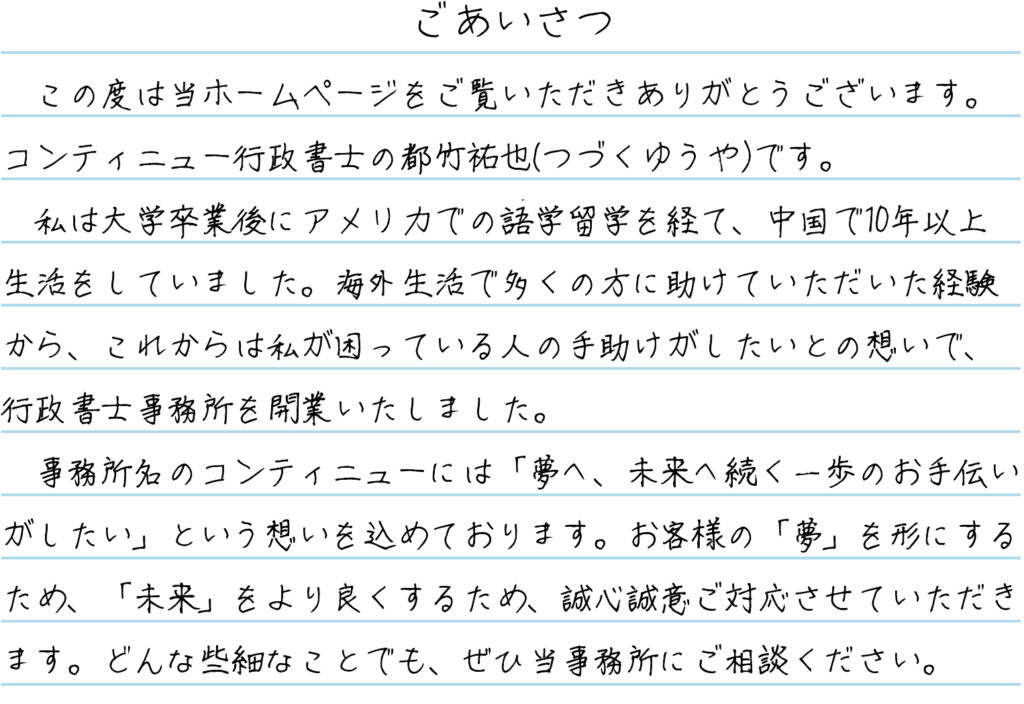 ごあいさつ
この度は当ホームページをご覧いただきありがとうございます。
コンティニュー行政書士の都竹祐也(つづくゆうや)です。
私は大学卒業後にアメリカでの語学留学を経て、中国で10年以上
生活をしていました。海外生活で多くの方に助けていただいた経験
から、これからは私が困っている人の手助けがしたいとの想いで、
行政書士事務所を開業いたしました。
事務所名のコンティニューには「夢へ、未来へ続く一歩のお手伝い
がしたい」という想いを込めております。お客様の「夢」を形にする
ため、「未来」をより良くするため、誠心誠意ご対応させていただき
ます。どんな些細なことでも、ぜひ当事務所にご相談ください。